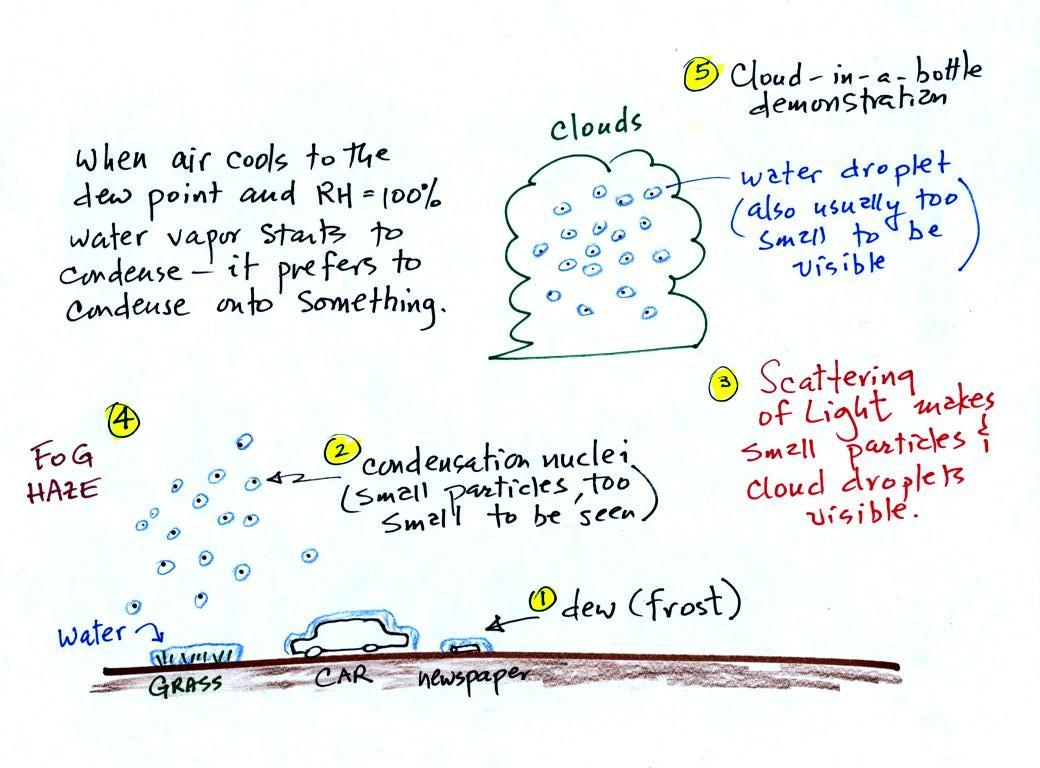 5 Cloud-in-a-bottle
demonstration
Clouds
When air cools to the
dew point and RH = 100%
water vapor starts to
condense - it prefers to
condense onto something.
water droplet
(also usually too
small to be
visible)
3 Scattering
of Light makes
small particles &
cloud droplets
visible.
4
FOG
HAZE
2 condensation nuclei
(small particles, too
small to be seen)
1 dew (frost)
water
GRASS
CAR
newspaper